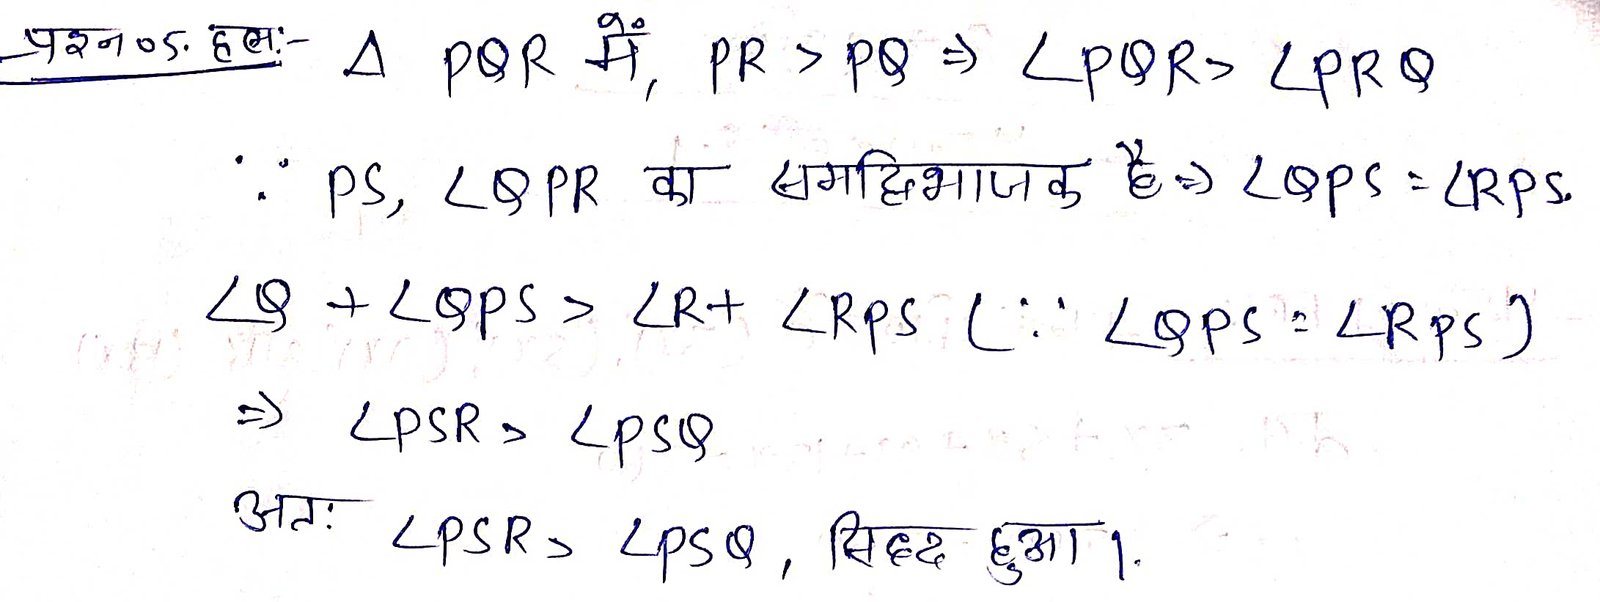 प्रश्न 05. हल:- Δ PQR में, PR > PQ ⇒ ∠PQR > ∠PRQ
∵ PS, ∠QPR का समद्विभाजक है ⇒ ∠QPS = ∠RPS.
∠Q + ∠QPS > ∠R + ∠RPS (∵ ∠QPS = ∠RPS)
⇒ ∠PSR > ∠PSQ
अतः ∠PSR > ∠PSQ, सिद्ध हुआ।